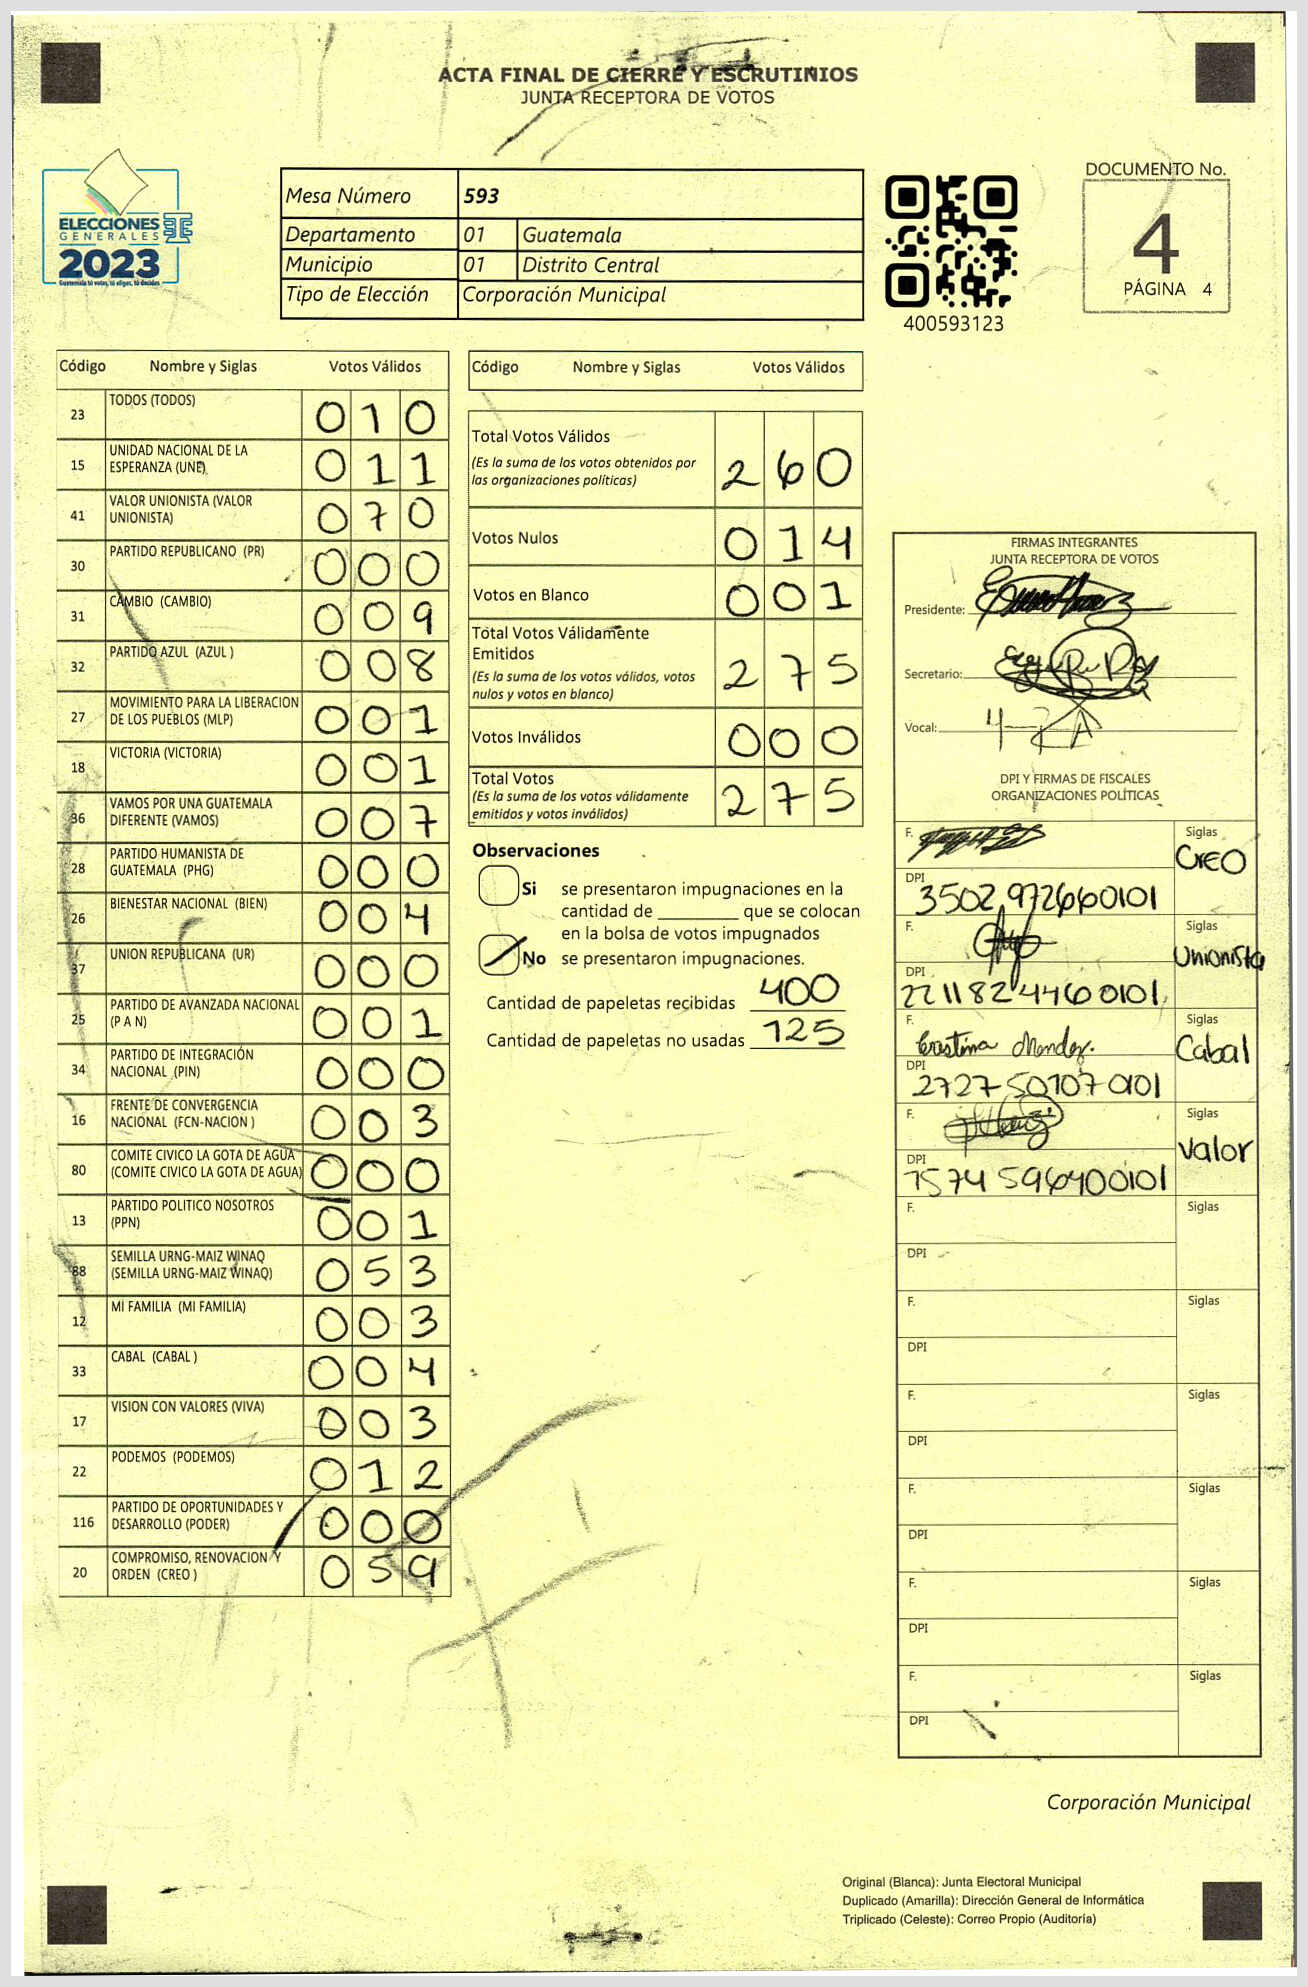 ACTA FINAL DE CIERRE Y ESCRUTINIOS
JUNTA RECEPTORA DE VOTOS
ELECCIONES
GENERALES
2023
Guatemala tú votas, tú eliges, tú decides
Mesa Número 593
Departamento 01 Guatemala
Municipio 01 Distrito Central
Tipo de Elección Corporación Municipal
400593123
DOCUMENTO No.
4
PÁGINA 4
Código Nombre y Siglas Votos Válidos
23 TODOS (TODOS) 010
15 UNIDAD NACIONAL DE LA
ESPERANZA (UNE) 011
41 VALOR UNIONISTA (VALOR
UNIONISTA) 070
30 PARTIDO REPUBLICANO (PR) 000
31 CAMBIO (CAMBIO) 009
32 PARTIDO AZUL (AZUL ) 008
27 MOVIMIENTO PARA LA LIBERACION
DE LOS PUEBLOS (MLP) 001
18 VICTORIA (VICTORIA) 001
36 VAMOS POR UNA GUATEMALA
DIFERENTE (VAMOS) 007
28 PARTIDO HUMANISTA DE
GUATEMALA (PHG) 000
26 BIENESTAR NACIONAL (BIEN) 004
37 UNION REPUBLICANA (UR) 000
25 PARTIDO DE AVANZADA NACIONAL
(P A N) 001
34 PARTIDO DE INTEGRACIÓN
NACIONAL (PIN) 000
16 FRENTE DE CONVERGENCIA
NACIONAL (FCN-NACION ) 003
80 COMITE CIVICO LA GOTA DE AGUA
(COMITE CIVICO LA GOTA DE AGUA) 000
13 PARTIDO POLITICO NOSOTROS
(PPN) 001
88 SEMILLA URNG-MAIZ WINAQ
(SEMILLA URNG-MAIZ WINAQ) 053
12 MI FAMILIA (MI FAMILIA) 003
33 CABAL (CABAL ) 004
17 VISION CON VALORES (VIVA) 003
22 PODEMOS (PODEMOS) 012
116 PARTIDO DE OPORTUNIDADES Y
DESARROLLO (PODER) 000
20 COMPROMISO, RENOVACION Y
ORDEN (CREO ) 059
Código Nombre y Siglas Votos Válidos
Total Votos Válidos 260
(Es la suma de los votos obtenidos por
las organizaciones políticas)
Votos Nulos 014
Votos en Blanco 001
Total Votos Válidamente
Emitidos 275
(Es la suma de los votos válidos, votos
nulos y votos en blanco)
Votos Inválidos 000
Total Votos 275
(Es la suma de los votos válidamente
emitidos y votos inválidos)
Observaciones
Si se presentaron impugnaciones en la
cantidad de ________ que se colocan
en la bolsa de votos impugnados
No se presentaron impugnaciones.
Cantidad de papeletas recibidas 400
Cantidad de papeletas no usadas 125
FIRMAS INTEGRANTES
JUNTA RECEPTORA DE VOTOS
Presidente:
Secretario:
Vocal:
DPI Y FIRMAS DE FISCALES
ORGANIZACIONES POLÍTICAS
F. Siglas
CREO
DPI
3502 972660101
F. Siglas
Unionista
DPI
2211824460101
F. Siglas
Cristina Mendez. Cabal
DPI
2727 501070101
F. Siglas
valor
DPI
1574 596400101
F. Siglas
DPI
F. Siglas
DPI
F. Siglas
DPI
F. Siglas
DPI
F. Siglas
DPI
F. Siglas
DPI
Corporación Municipal
Original (Blanca): Junta Electoral Municipal
Duplicado (Amarilla): Dirección General de Informática
Triplicado (Celeste): Correo Propio (Auditoría)